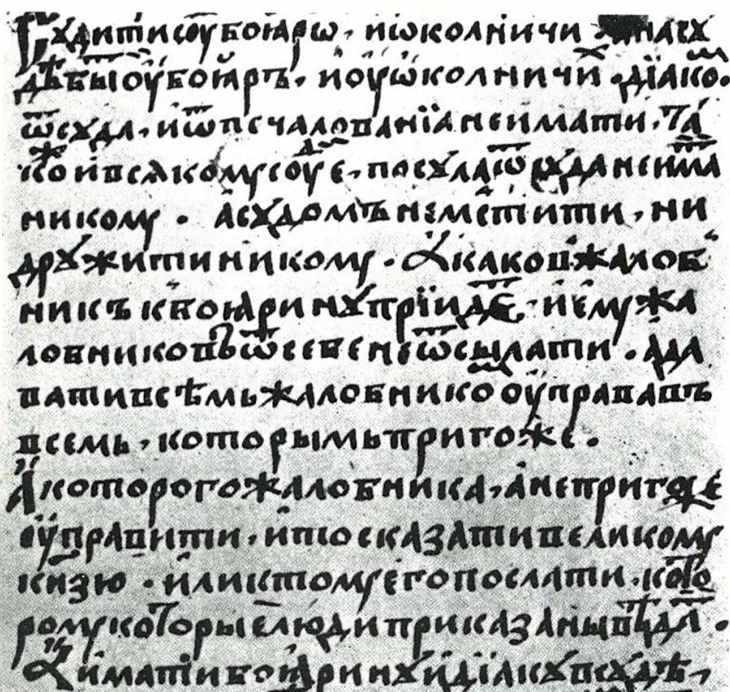 Сꙋдити сꙋ боꙗрѡ, и ѡколничи . А на сꙋ
дѣ бы оу боꙗръ, и оу ѡколничи . діако .
ѿ сꙋда, и ѿ печалованіа не имати, та
кож и всякомꙋ соуде, посꙋла ѿ сꙋда не има
никомꙋ . а сꙋдомъ не мстити, ни
дрꙋжити никомꙋ . А каков жалоб
никъ к боꙗринꙋ пріиде, и емꙋ жа
лобниковъ ѿ себе не ѿсылати . а да
вати всѣмь жалобнико оуправа въ
всемь, которымь пригоже .
А которого жалобника, а непригоже
оуправити, и то сказати великомꙋ
кнѕю . или к томꙋ его послати . кото
ромꙋ которые люди приказаны вѣда .
А имати боꙗринꙋ и діакꙋ в сꙋдѣ,